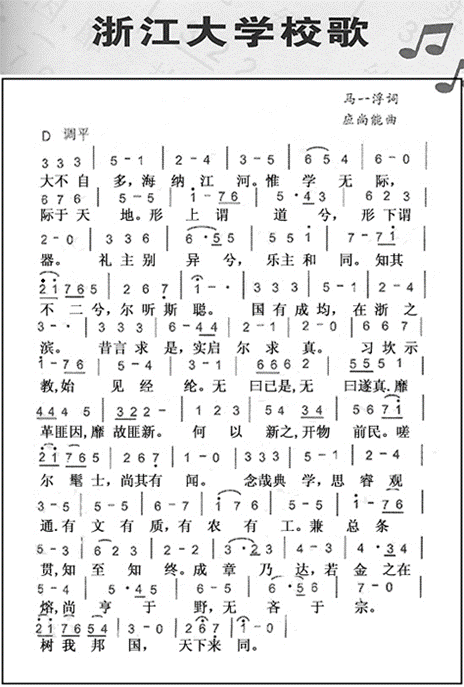 浙江大学校歌
马一浮词
应尚能曲
D 调平
3 3 3 | 5 - 1 | 2 - 4 | 3 - 5 | 6 5 4 | 6 - 0 |
大不自多，海纳江河。惟学无际，
6 7 6 | 5 - 5 | 1 - 7 6 | 5 · 4 3 | 6 2 3 |
际于天地。形上谓道兮，形下谓
2 - 0 | 3 3 6 | 6 · 5 5 | 5 5 1 | 7 - 7 1 |
器。礼主别异兮，乐主和同。知其
2 1 7 6 5 | 2 6 7 | 1 - · | 3 3 3 | 5 - 1 | 2 - 4 |
不二兮，尔听斯聪。国有成均，在浙之
3 - · | 3 3 3 | 6 - 4 4 | 2 - 1 | 2 - 0 | 3 - 1 |
滨。昔言求是，实启尔求真。习坎示
1 - 7 6 | 5 - 4 | 3 - 1 | 6 6 6 2 | 5 5 5 5 1 |
教，始见经纶。无曰已是，无曰遂真。靡
4 4 4 5 | 3 2 2 - | 1 2 3 | 5 4 3 4 | 5 6 7 1 |
革匪因，靡故匪新。何以新之，开物前民。嗟
2 1 7 6 5 | 2 6 7 | 1 - 0 | 3 3 3 | 5 - 1 | 2 - 4 |
尔髦士，尚其有闻。念哉典学，思睿观
3 - 5 | 5 - 5 | 6 - 7 | 6 - 3 | 5 - 5 | 1 - 7 6 |
通。有文有质，有农有工。兼总条
5 - 3 | 6 2 3 | 2 - 2 | 2 - 4 | 3 · 2 3 | 4 · 2 3 |
贯，知至知终。成章乃达，若金之在
5 - 4 | 5 · 4 5 | 6 - 2 | 6 · 5 6 | 7 - 6 |
熔，尚亨于野，无吝于宗。
2 1 7 6 5 4 | 3 - 0 | 2 6 7 | 1 - 0 |
树我邦国，天下来同。